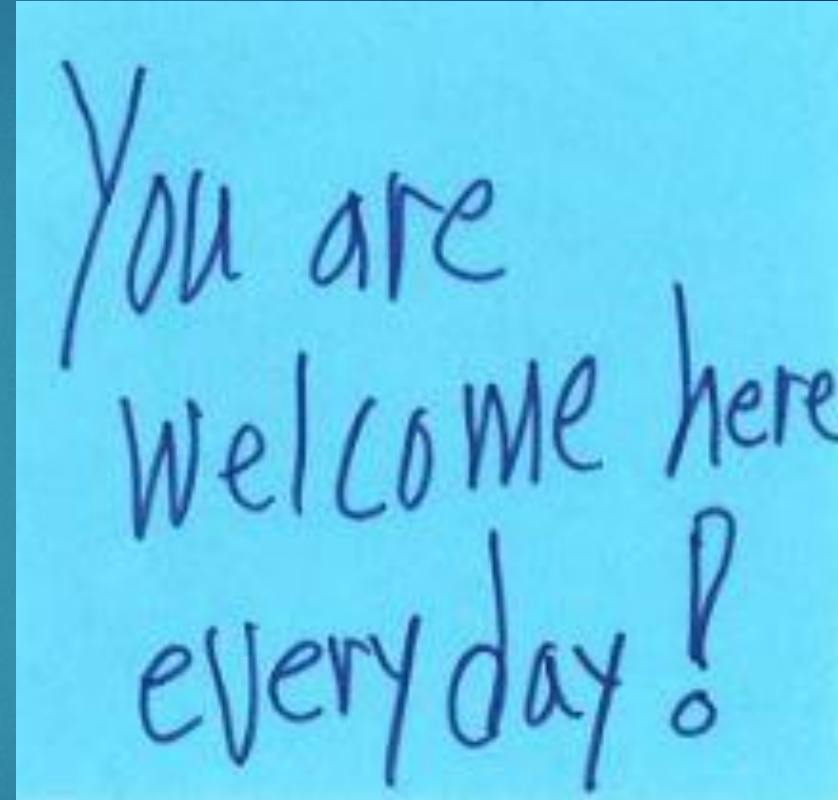 You are
welcome here
every day!